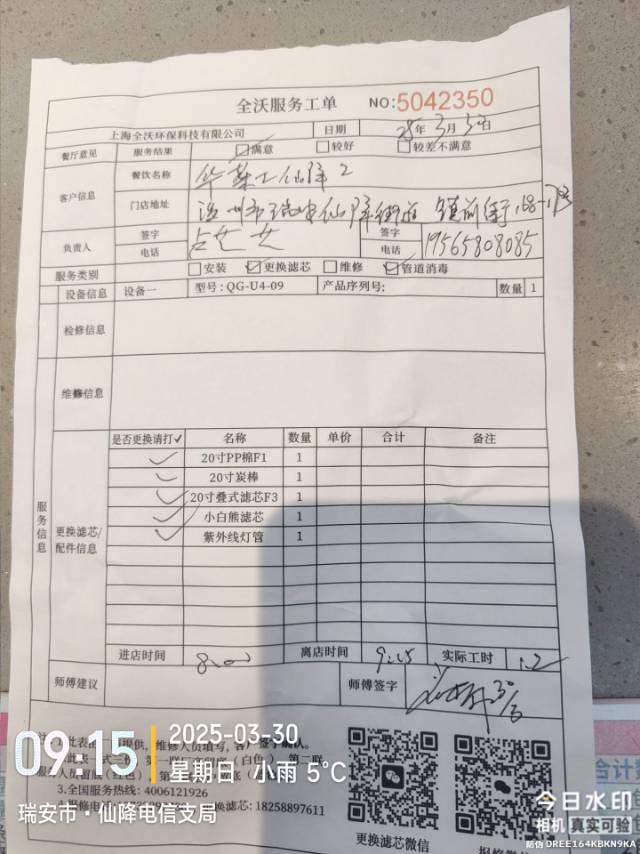 全沃服务工单 NO:5042350
上海全沃环保科技有限公司 日期 25年3月30日
餐厅意见 服务结果 满意 较好 较差不满意
客户信息 餐饮名称 华莱士仙降2
门店地址 温州市瑞安仙降街道 镇前街168-178
负责人 签字 占芝芝 签字
电话 电话 19565808085
服务类别 安装 更换滤芯 维修 管道消毒
设备信息 设备一 型号:QG-U4-09 产品序列号: 数量 1
检修信息
维修信息
服务信息
更换滤芯/配件信息
是否更换请打✓ 名称 数量 单价 合计 备注
✓ 20寸PP棉F1 1
✓ 20寸炭棒 1
✓ 20寸叠式滤芯F3 1
✓ 小白熊滤芯 1
✓ 紫外线灯管 1
进店时间 8:00 离店时间 9:15 实际工时 1.2
师傅建议 师傅签字
3.全国服务热线: 4006121926
滤芯: 18258897611
更换滤芯微信
09:15
2025-03-30
星期日 小雨 5℃
瑞安市·仙降电信支局
今日水印
相机 真实可验
防伪 DREE164KBKN9KA
合计